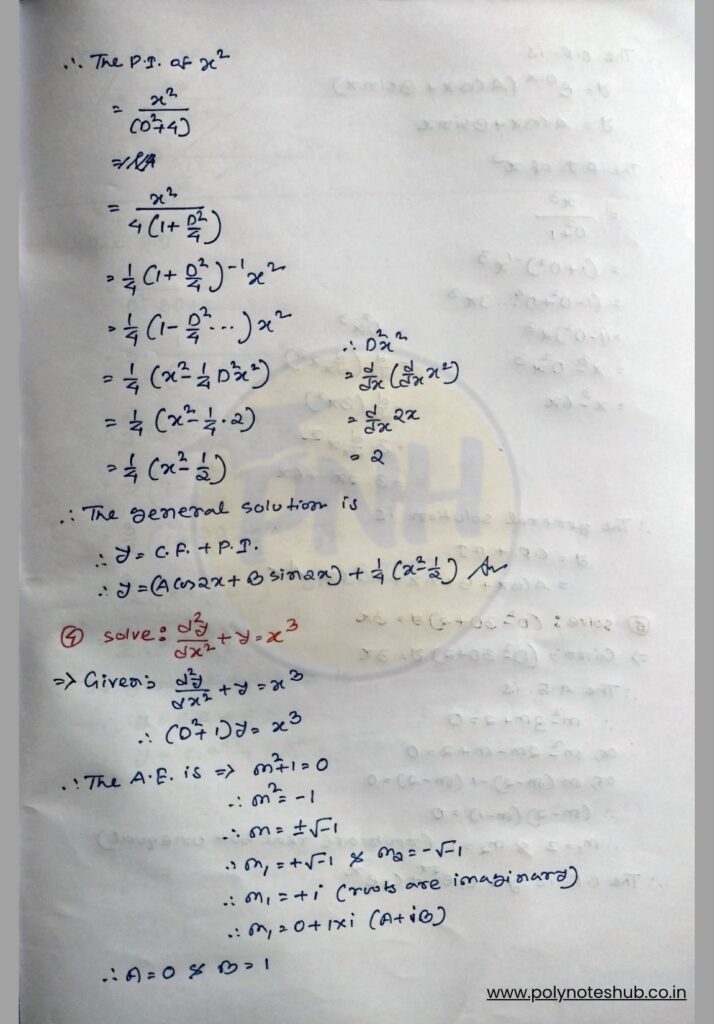 ∴ The P.I. of x²
= x²/(D²+4)
=>
= x²/4(1+D²/4)
= 1/4 (1+D²/4)⁻¹ x²
= 1/4 (1-D²/4...) x²
= 1/4 (x²-1/4 D²x²)
= 1/4 (x²-1/4·2)
= 1/4 (x²-1/2)
∴ D²x²
= d/dx (d/dx x²)
= d/dx 2x
= 2
∴ The general solution is
∴ y = C.F. + P.I.
∴ y = (A cos 2x + B sin 2x) + 1/4 (x²-1/2) An
④ solve: d²y/dx² + y = x³
=> Given: d²y/dx² + y = x³
∴ (D²+1)y = x³
∴ The A.E. is => m²+1=0
∴ m² = -1
∴ m = ±√-1
∴ m₁ = +√-1 & m₂ = -√-1
∴ m₁ = +i (roots are imaginary)
∴ m₁ = 0+1×i (A+iB)
∴ A=0 & B=1
PNH
www.polynoteshub.co.in